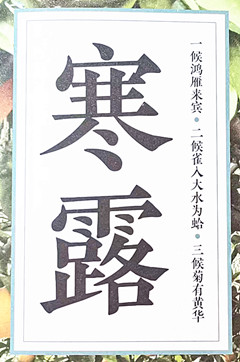 寒露
一候鸿雁来宾·二候雀入大水为蛤·三候菊有黄华